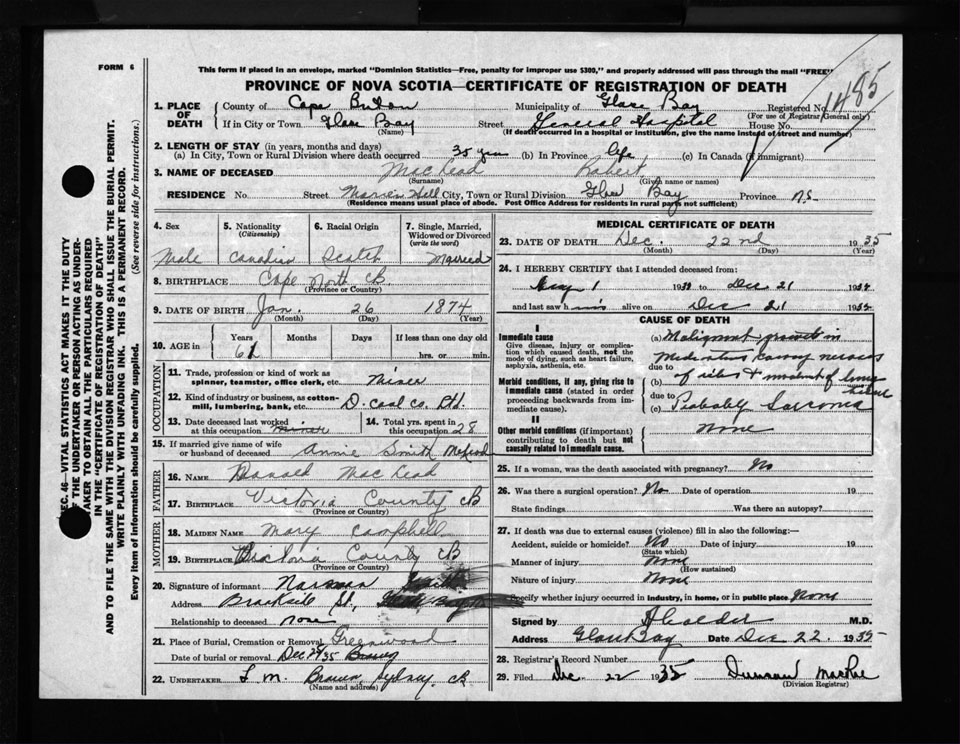 FORM 6
This form if placed in an envelope, marked "Dominion Statistics—Free, penalty for improper use $300," and properly addressed will pass through the mail "FREE"
PROVINCE OF NOVA SCOTIA—CERTIFICATE OF REGISTRATION OF DEATH
1485
1. PLACE OF DEATH County of Cape Breton Municipality of Glace Bay Registered No.
(For use of Registrar General only)
If in City or Town Glace Bay Street General Hospital House No.
(Name) (If death occurred in a hospital or institution, give the name instead of street and number)
2. LENGTH OF STAY (in years, months and days)
(a) In City, Town or Rural Division where death occurred 35 years (b) In Province life (c) In Canada (if immigrant)
3. NAME OF DECEASED MacLeod Robert
(Surname) (Given name or names)
RESIDENCE No. Street Hill City, Town or Rural Division Glace Bay Province N.S.
(Residence means usual place of abode. Post Office Address for residents in rural parts not sufficient)
4. Sex 5. Nationality (Citizenship) 6. Racial Origin 7. Single, Married, Widowed or Divorced (write the word)
Male Canadian Scotch Married
8. BIRTHPLACE Cape North CB
(Province or Country)
9. DATE OF BIRTH Jan. 26 1874
(Month) (Day) (Year)
10. AGE in Years Months Days If less than one day old
61 hrs. or min.
OCCUPATION
11. Trade, profession or kind of work as spinner, teamster, office clerk, etc. Miner
12. Kind of industry or business, as cotton-mill, lumbering, bank, etc. D. Coal Co. Ltd.
13. Date deceased last worked at this occupation miner 14. Total yrs. spent in this occupation 28
15. If married give name of wife or husband of deceased Annie Smith McLeod
FATHER
16. NAME Donald MacLeod
17. BIRTHPLACE Victoria County CB
(Province or Country)
MOTHER
18. MAIDEN NAME Mary Campbell
19. BIRTHPLACE Victoria County CB
(Province or Country)
20. Signature of informant Norman Smith
Address St.,
Relationship to deceased none
21. Place of Burial, Cremation or Removal Greenwood
Date of burial or removal Dec 24/35
22. UNDERTAKER L. M. Brown, Sydney, CB
(Name and address)
MEDICAL CERTIFICATE OF DEATH
23. DATE OF DEATH Dec. 22nd 1935
(Month) (Day) (Year)
24. I HEREBY CERTIFY that I attended deceased from:
1 193 to Dec 21 193
and last saw h alive on Dec 21 193
CAUSE OF DEATH
I
Immediate cause
Give disease, injury or complication which caused death, not the mode of dying, such as heart failure, asphyxia, asthenia, etc.
Morbid conditions, if any, giving rise to immediate cause (stated in order proceeding backwards from immediate cause).
II
Other morbid conditions (if important) contributing to death but not causally related to immediate cause.
(a) Malignant growth in
due to
(b) of ribs
due to
(c) Probably Sarcoma
None
25. If a woman, was the death associated with pregnancy? No
26. Was there a surgical operation? No Date of operation 19
State findings Was there an autopsy?
27. If death was due to external causes (violence) fill in also the following:—
Accident, suicide or homicide? No Date of injury 19
(State which)
Manner of injury None
(How sustained)
Nature of injury None
Specify whether injury occurred in industry, in home, or in public place None
Signed by M.D.
Address Glace Bay Date Dec. 22 1935
28. Registrar's Record Number
29. Filed Dec. 22 1935 Duncan MacRae
(Division Registrar)
SEC. 46—VITAL STATISTICS ACT MAKES IT THE DUTY
OF THE UNDERTAKER OR PERSON ACTING AS UNDERTAKER TO OBTAIN ALL THE PARTICULARS REQUIRED
IN THE "CERTIFICATE OF REGISTRATION OF DEATH"
AND TO FILE THE SAME WITH THE DIVISION REGISTRAR WHO SHALL ISSUE THE BURIAL PERMIT.
WRITE PLAINLY WITH UNFADING INK. THIS IS A PERMANENT RECORD.
Every item of information should be carefully supplied. (See reverse side for instructions.)